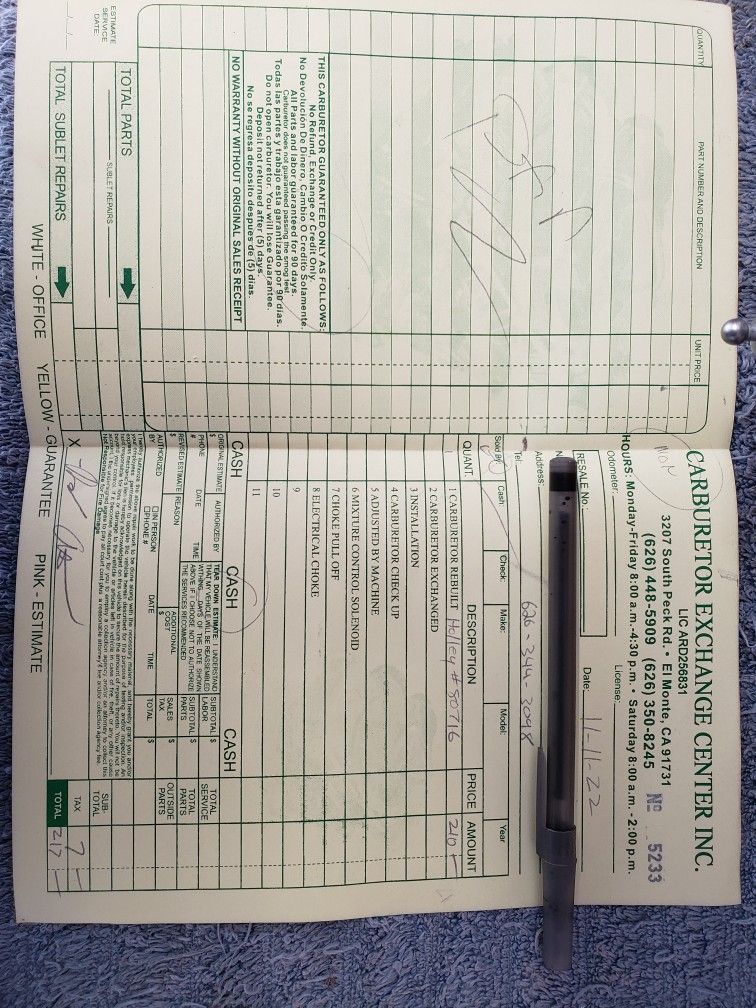 CARBURETOR EXCHANGE CENTER INC.
LIC ARD256831
3207 South Peck Rd. • El Monte, CA 91731
(626) 448-5909 (626) 350-8245 No 5233
HOURS: Monday-Friday 8:00 a.m.-4:30 p.m. • Saturday 8:00 a.m. - 2:00 p.m.
Odometer: License:
RESALE No. Date: 11-11-22
Address:
Tel 626-344-3098
Sold By: Cash Check: Make: Model: Year
QUANT. DESCRIPTION PRICE AMOUNT
1 CARBURETOR REBUILT Holley # 80716 210
2 CARBURETOR EXCHANGED
3 INSTALLATION
4 CARBURETOR CHECK UP
5 ADJUSTED BY MACHINE
6 MIXTURE CONTROL SOLENOID
7 CHOKE PULL OFF
8 ELECTRICAL CHOKE
9
10
11
CASH CASH CASH
ORIGINAL ESTIMATE AUTHORIZED BY
$
PHONE # DATE TIME
REVISED ESTIMATE REASON
$ ADDITIONAL COST $
AUTHORIZED BY IN PERSON PHONE # DATE TIME
TEAR DOWN ESTIMATE: I UNDERSTAND
THAT MY VEHICLE WILL BE REASSEMBLED
WITHIN DAYS OF THE DATE SHOWN
ABOVE IF I CHOOSE NOT TO AUTHORIZE
THE SERVICES RECOMMENDED
SUBTOTAL $
LABOR
SUBTOTAL $
PARTS
SALES TAX $
TOTAL $
TOTAL SERVICE
TOTAL PARTS
OUTSIDE PARTS
SUB-TOTAL
TAX 7
TOTAL 217
X
QUANTITY PART NUMBER AND DESCRIPTION UNIT PRICE
THIS CARBURETOR GUARANTEED ONLY AS FOLLOWS:
No Refund, Exchange or Credit Only.
No Devolución De Dinero, Cambio O Credito Solamente.
All Parts and labor guaranteed for 90 days.
Carburetor does not guaranteed passing the smog test.
Todas las partes y trabajo esta garantizado por 90 dias.
Do not open carburetor. You will lose Guarantee.
Deposit not returned after (5) days.
No se regresa deposito despues de (5) dias.
NO WARRANTY WITHOUT ORIGINAL SALES RECEIPT
TOTAL PARTS
SUBLET REPAIRS
ESTIMATE SERVICE DATE:
TOTAL SUBLET REPAIRS
WHITE - OFFICE YELLOW - GUARANTEE PINK - ESTIMATE